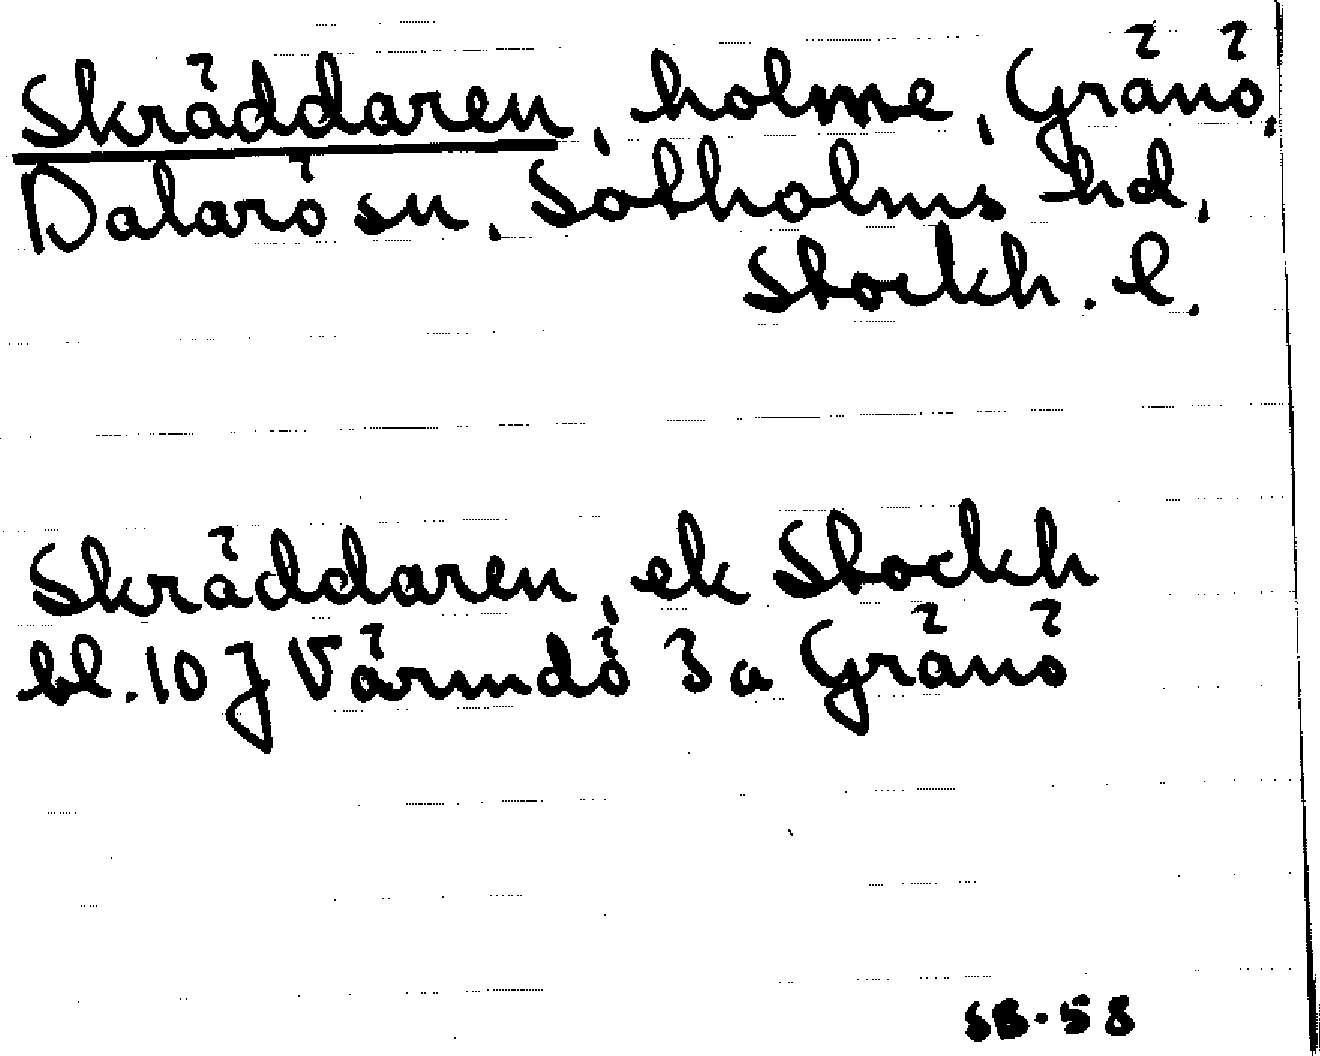 Skräddaren, holme, Gränö,
Dalarö sn, Sotholms hd,
Stockh. l.
Skräddaren, ek Stockh
bl. 10 J Värmdö 3a Gränö
SB·58